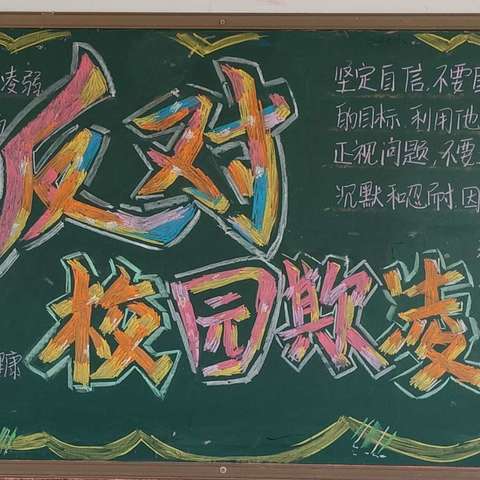 凌弱
反对
校园欺凌
坚定自信,不要
的目标,利用
正视问题,不要
沉默和忍耐,因